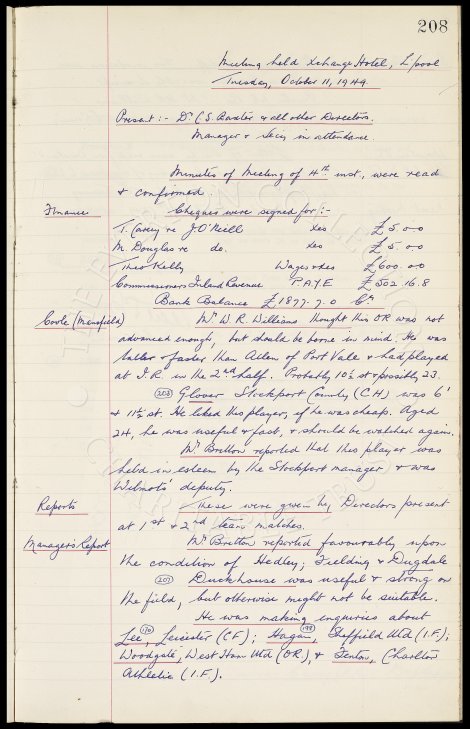 208
Meeting held Xchange Hotel, L/pool
Tuesday, October 11, 1949.
Present :- Dr. C. S. Baxter & all other Directors.
Manager & Secy in attendance.
Minutes of Meeting of 4th inst, were read
& confirmed.
Finance Cheques were signed for :-
T. Casey re J. O'Neill Xes £5.0.0
M. Douglas re do. Xes £5.0.0
Theo Kelly Wages & Xes £600.0.0
Commissioners Inland Revenue P.A.Y.E £502.16.8
Bank Balance £1877.7.0 Cr.
Coole (Mansfield) Mr. W. R. Williams thought this OR was not
advanced enough, but should be borne in mind. He was
taller & faster than Allen of Port Vale & had played
at I.R. in the 2nd half. Probably 10½ st & possibly 23.
(203) Glover Stockport County (C.H) was 6'
& 11½ st. He liked this player, if he was cheap. Aged
24, he was useful & fast, & should be watched again.
Mr. Britton reported that this player was
held in esteem by the Stockport manager & was
Wilmots' deputy.
Reports These were given by Directors present
at 1st & 2nd team matches.
Managers Report Mr. Britton reported favourably upon
the condition of Hedley; Fielding & Dugdale
(207) Duckhouse was useful & strong on
the field, but otherwise might not be suitable.
He was making enquiries about
Lee, (170) Leicester (C.F); Hagan, (198) Sheffield Utd (I.F);
Woodgate, West Ham Utd (OR), & Fenton, Charlton
Athletic (I.F).